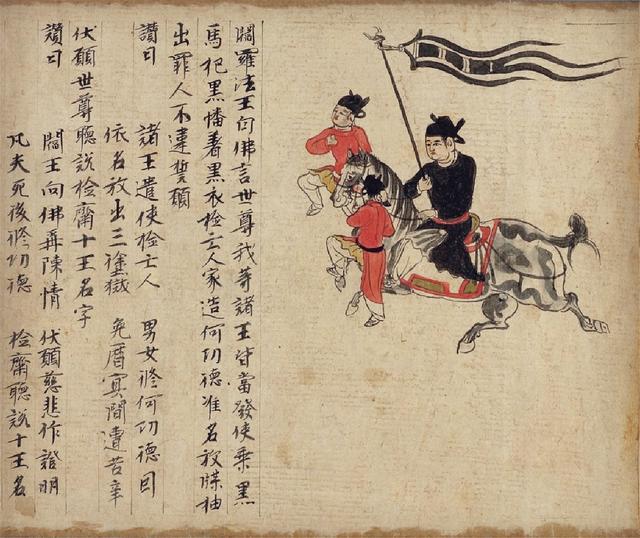 閻羅法王白佛言世尊我等諸王皆當發使乘黑
馬把黑幡著黑衣檢亡人家造何功德准名放牒抽
出罪人不違誓願
讚曰 諸王遣使檢亡人 男女修何功德因
依名放出三塗獄 免曆冥間遭苦辛
伏願世尊聽說檢齋十王名字
讚曰 閻王向佛再陳情 伏願慈悲作證明
凡夫死後修功德 檢齋聽說十王名